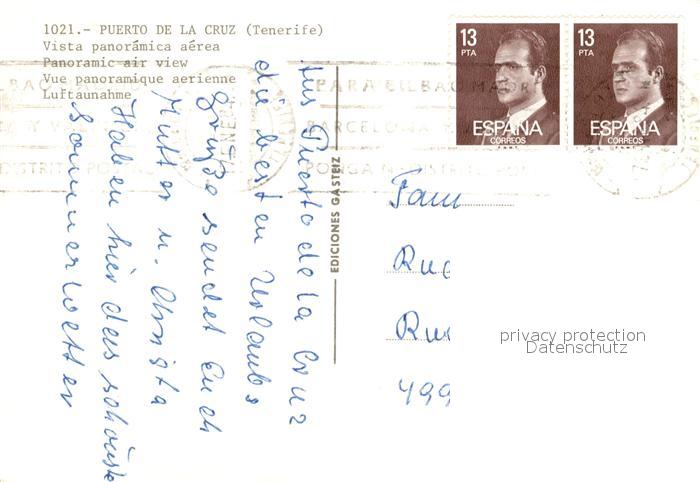 1021.- PUERTO DE LA CRUZ (Tenerife)
Vista panorámica aérea
Panoramic air view
Vue panoramique aerienne
Luftaunahme
Aus Puerto de la Cruz
die besten Urlaubs
grüße sendet Euch
Mutter u.
Haben hier das schönste
Sommerwetter
EDICIONES GASTEIZ
13
PTA
ESPAÑA
CORREOS
FNMT
13
PTA
ESPAÑA
CORREOS
FNMT
PARA BILBAO MADRI
BARCELONA
PONGA DISTRI
Fam
Rue
Ru
499
privacy protection
Datenschutz